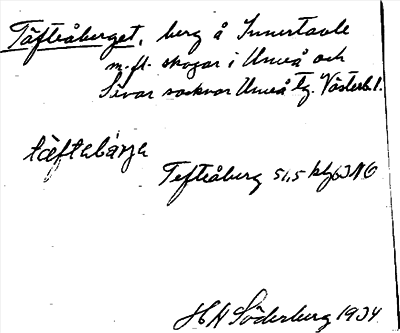 Täfteåberget, berg å Innertavle
m.fl. skogar i Umeå och
Sävar socknar Umeå Tg. Västerb. l.
täftabärja
Tefteåberg 51,5
H A Söderberg 1934